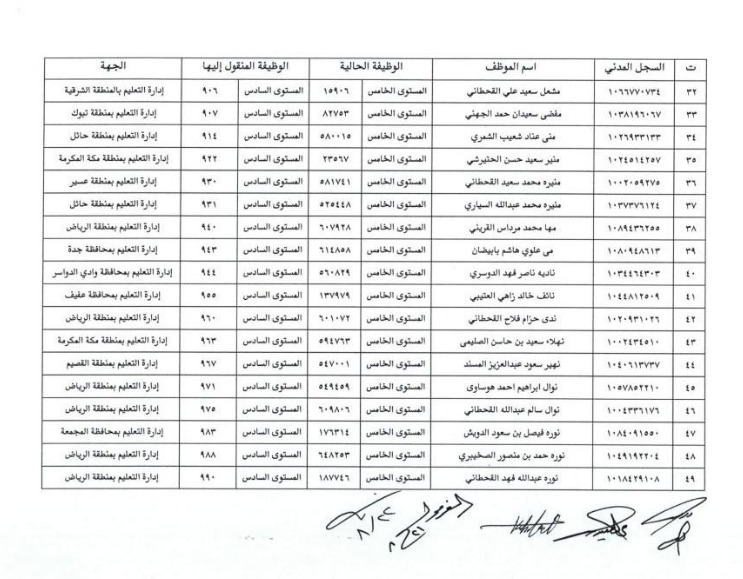 ت السجل المدني اسم الموظف الوظيفة الحالية الوظيفة المنقول إليها الجهة
٣٢ ١٠٦٦٧٧٠٧٣٤ مشعل سعيد علي القحطاني المستوى الخامس ١٥٩٠٦ المستوى السادس ٩٠٦ إدارة التعليم بالمنطقة الشرقية
٣٣ ١٠٣٨١٩٦٠٦٧ مفضى سعيدان حمد الجهني المستوى الخامس ٨٢٧٥٣ المستوى السادس ٩٠٧ إدارة التعليم بمنطقة تبوك
٣٤ ١٠٢٦٩٣٣١٣٣ منى عناد شعيب الشمري المستوى الخامس ٥٨٠٠١٥ المستوى السادس ٩١٤ إدارة التعليم بمنطقة حائل
٣٥ ١٠٢٤٥١٤٢٥٧ منير سعيد حسن الحتيرشي المستوى الخامس ٢٣٥٦٧ المستوى السادس ٩٢٢ إدارة التعليم بمنطقة مكة المكرمة
٣٦ ١٠٠٢٠٥٩٢٧٥ منيره محمد سعيد القحطاني المستوى الخامس ٥٨١٧٤١ المستوى السادس ٩٣٠ إدارة التعليم بمنطقة عسير
٣٧ ١٠٣٧٣٧٦١٢٤ منيره محمد عبدالله السياري المستوى الخامس ٥٢٥٤٤٨ المستوى السادس ٩٣١ إدارة التعليم بمنطقة حائل
٣٨ ١٠٨٩٤٣٦٢٥٥ مها محمد مرداس القريني المستوى الخامس ٦٠٧٩٢٨ المستوى السادس ٩٤٠ إدارة التعليم بمنطقة الرياض
٣٩ ١٠٨٠٩٤٨٦١٣ مى علوي هاشم بابيضان المستوى الخامس ٦١٤٨٥٨ المستوى السادس ٩٤٣ إدارة التعليم بمحافظة جدة
٤٠ ١٠٣٤٤٦٤٣٠٣ ناديه ناصر فهد الدوسري المستوى الخامس ٥٦٠٨٢٩ المستوى السادس ٩٤٤ إدارة التعليم بمحافظة وادي الدواسر
٤١ ١٠٤٤٨١٢٥٠٩ نائف خالد زاهي العتيبي المستوى الخامس ١٣٧٩٧٩ المستوى السادس ٩٥٥ إدارة التعليم بمحافظة عفيف
٤٢ ١٠٢٠٩٣١٠٢٦ ندى حزام فلاح القحطاني المستوى الخامس ٦٠١٠٧٢ المستوى السادس ٩٦٠ إدارة التعليم بمنطقة الرياض
٤٣ ١٠٠٢٤٣٤٥١٠ نهلاء سعيد بن حاسن الصليمى المستوى الخامس ٥٩٤٧٦٣ المستوى السادس ٩٦٣ إدارة التعليم بمنطقة مكة المكرمة
٤٤ ١٠٤٠٦١٣٧٣٧ نهير سعود عبدالعزيز المسند المستوى الخامس ٥٤٧٠٠١ المستوى السادس ٩٦٧ إدارة التعليم بمنطقة القصيم
٤٥ ١٠٥٧٨٥٢٢١٠ نوال ابراهيم احمد هوساوى المستوى الخامس ٥٤٩٤٥٩ المستوى السادس ٩٧١ إدارة التعليم بمنطقة الرياض
٤٦ ١٠٠٤٣٣٦١٧٦ نوال سالم عبدالله القحطاني المستوى الخامس ٦٠٩٨٠٦ المستوى السادس ٩٧٥ إدارة التعليم بمنطقة الرياض
٤٧ ١٠٨٤٠٩١٥٥٠ نوره فيصل بن سعود الدويش المستوى الخامس ١٧٦٣١٤ المستوى السادس ٩٨٣ إدارة التعليم بمحافظة المجمعة
٤٨ ١٠٤٩١٩٢٢٠٤ نوره حمد بن منصور الصخيبري المستوى الخامس ٦٤٨٢٥٣ المستوى السادس ٩٨٨ إدارة التعليم بمنطقة الرياض
٤٩ ١٠١٨٤٢٩١٠٨ نوره عبدالله فهد القحطاني المستوى الخامس ١٨٧٧٤٦ المستوى السادس ٩٩٠ إدارة التعليم بمنطقة الرياض